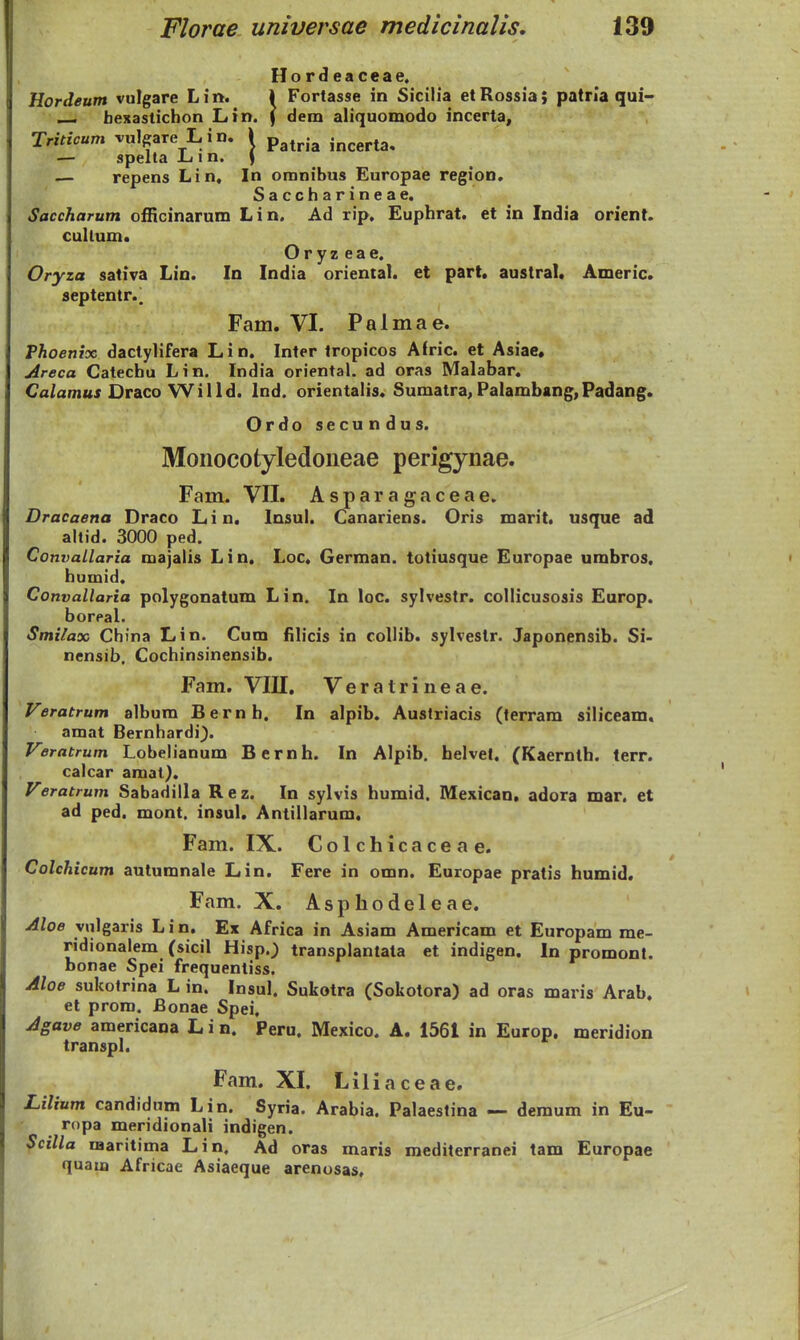 Florae universae medicinalis. 139
Hordeaceae.
Hordeum vulgare Lin. } Fortasse in Sicilia et Rossia; patria qui-
— hexastichon Lin. } dem aliquomodo incerta,
Triticum vulgare Lin. } Patria incerta.
— spelta Lin. }
— repens Lin, In omnibus Europae region.
Saccharineae.
Saccharum officinarum Lin. Ad rip. Euphrat. et in India orient.
cultum.
Oryzeae.
Oryza sativa Lin. In India oriental. et part. austral. Americ.
septentr..
Fam. VI. Palmae.
Phoenix dactylifera Lin. Inter tropicos Afric. et Asiae.
Areca Catechu Lin. India oriental. ad oras Malabar.
Calamus Draco Willd. Ind. orientalis. Sumatra, Palambang, Padang.
Ordo secundus.
Monocotyledoneae perigynae.
Fam. VII. Asparagaceae.
Dracaena Draco Lin. Insul. Canariens. Oris marit. usque ad
altid. 3000 ped.
Convallaria majalis Lin. Loc. German. totiusque Europae umbros.
humid.
Convallaria polygonatum Lin. In loc. sylvestr. collicusosis Europ.
boreal.
Smilax China Lin. Cum filicis in collib. sylvestr. Japonensib. Si-
nensib. Cochinsinensib.
Fam. VIII. Veratrineae.
Veratrum album Bernh. In alpib. Austriacis (terram siliceam.
amat Bernhardi).
Veratrum Lobelianum Bernh. In Alpib. helvet. (Kaernth. terr.
calcar amat).
Veratrum Sabadilla Rez. In sylvis humid. Mexican. adora mar. et
ad ped. mont. insul. Antillarum.
Fam. IX. Colchicaceae.
Colchicum autumnale Lin. Fere in omn. Europae pratis humid.
Fam. X. Asphodeleae.
Aloe vulgaris Lin. Ex Africa in Asiam Americam et Europam me-
ridionalem (sicil Hisp.) transplantata et indigen. In promont.
bonae Spei frequentiss.
Aloe sukotrina Lin. Insul. Sukotra (Sokotora) ad oras maris Arab.
et prom. Bonae Spei.
Agave americana Lin. Peru. Mexico. A. 1561 in Europ. meridion
transpl.
Fam. XI. Liliaceae.
Lilium candidum Lin. Syria. Arabia. Palaestina — demum in Eu-
ropa meridionali indigen.
Scilla maritima Lin. Ad oras maris mediterranei tam Europae
quam Africae Asiaeque arenosas.